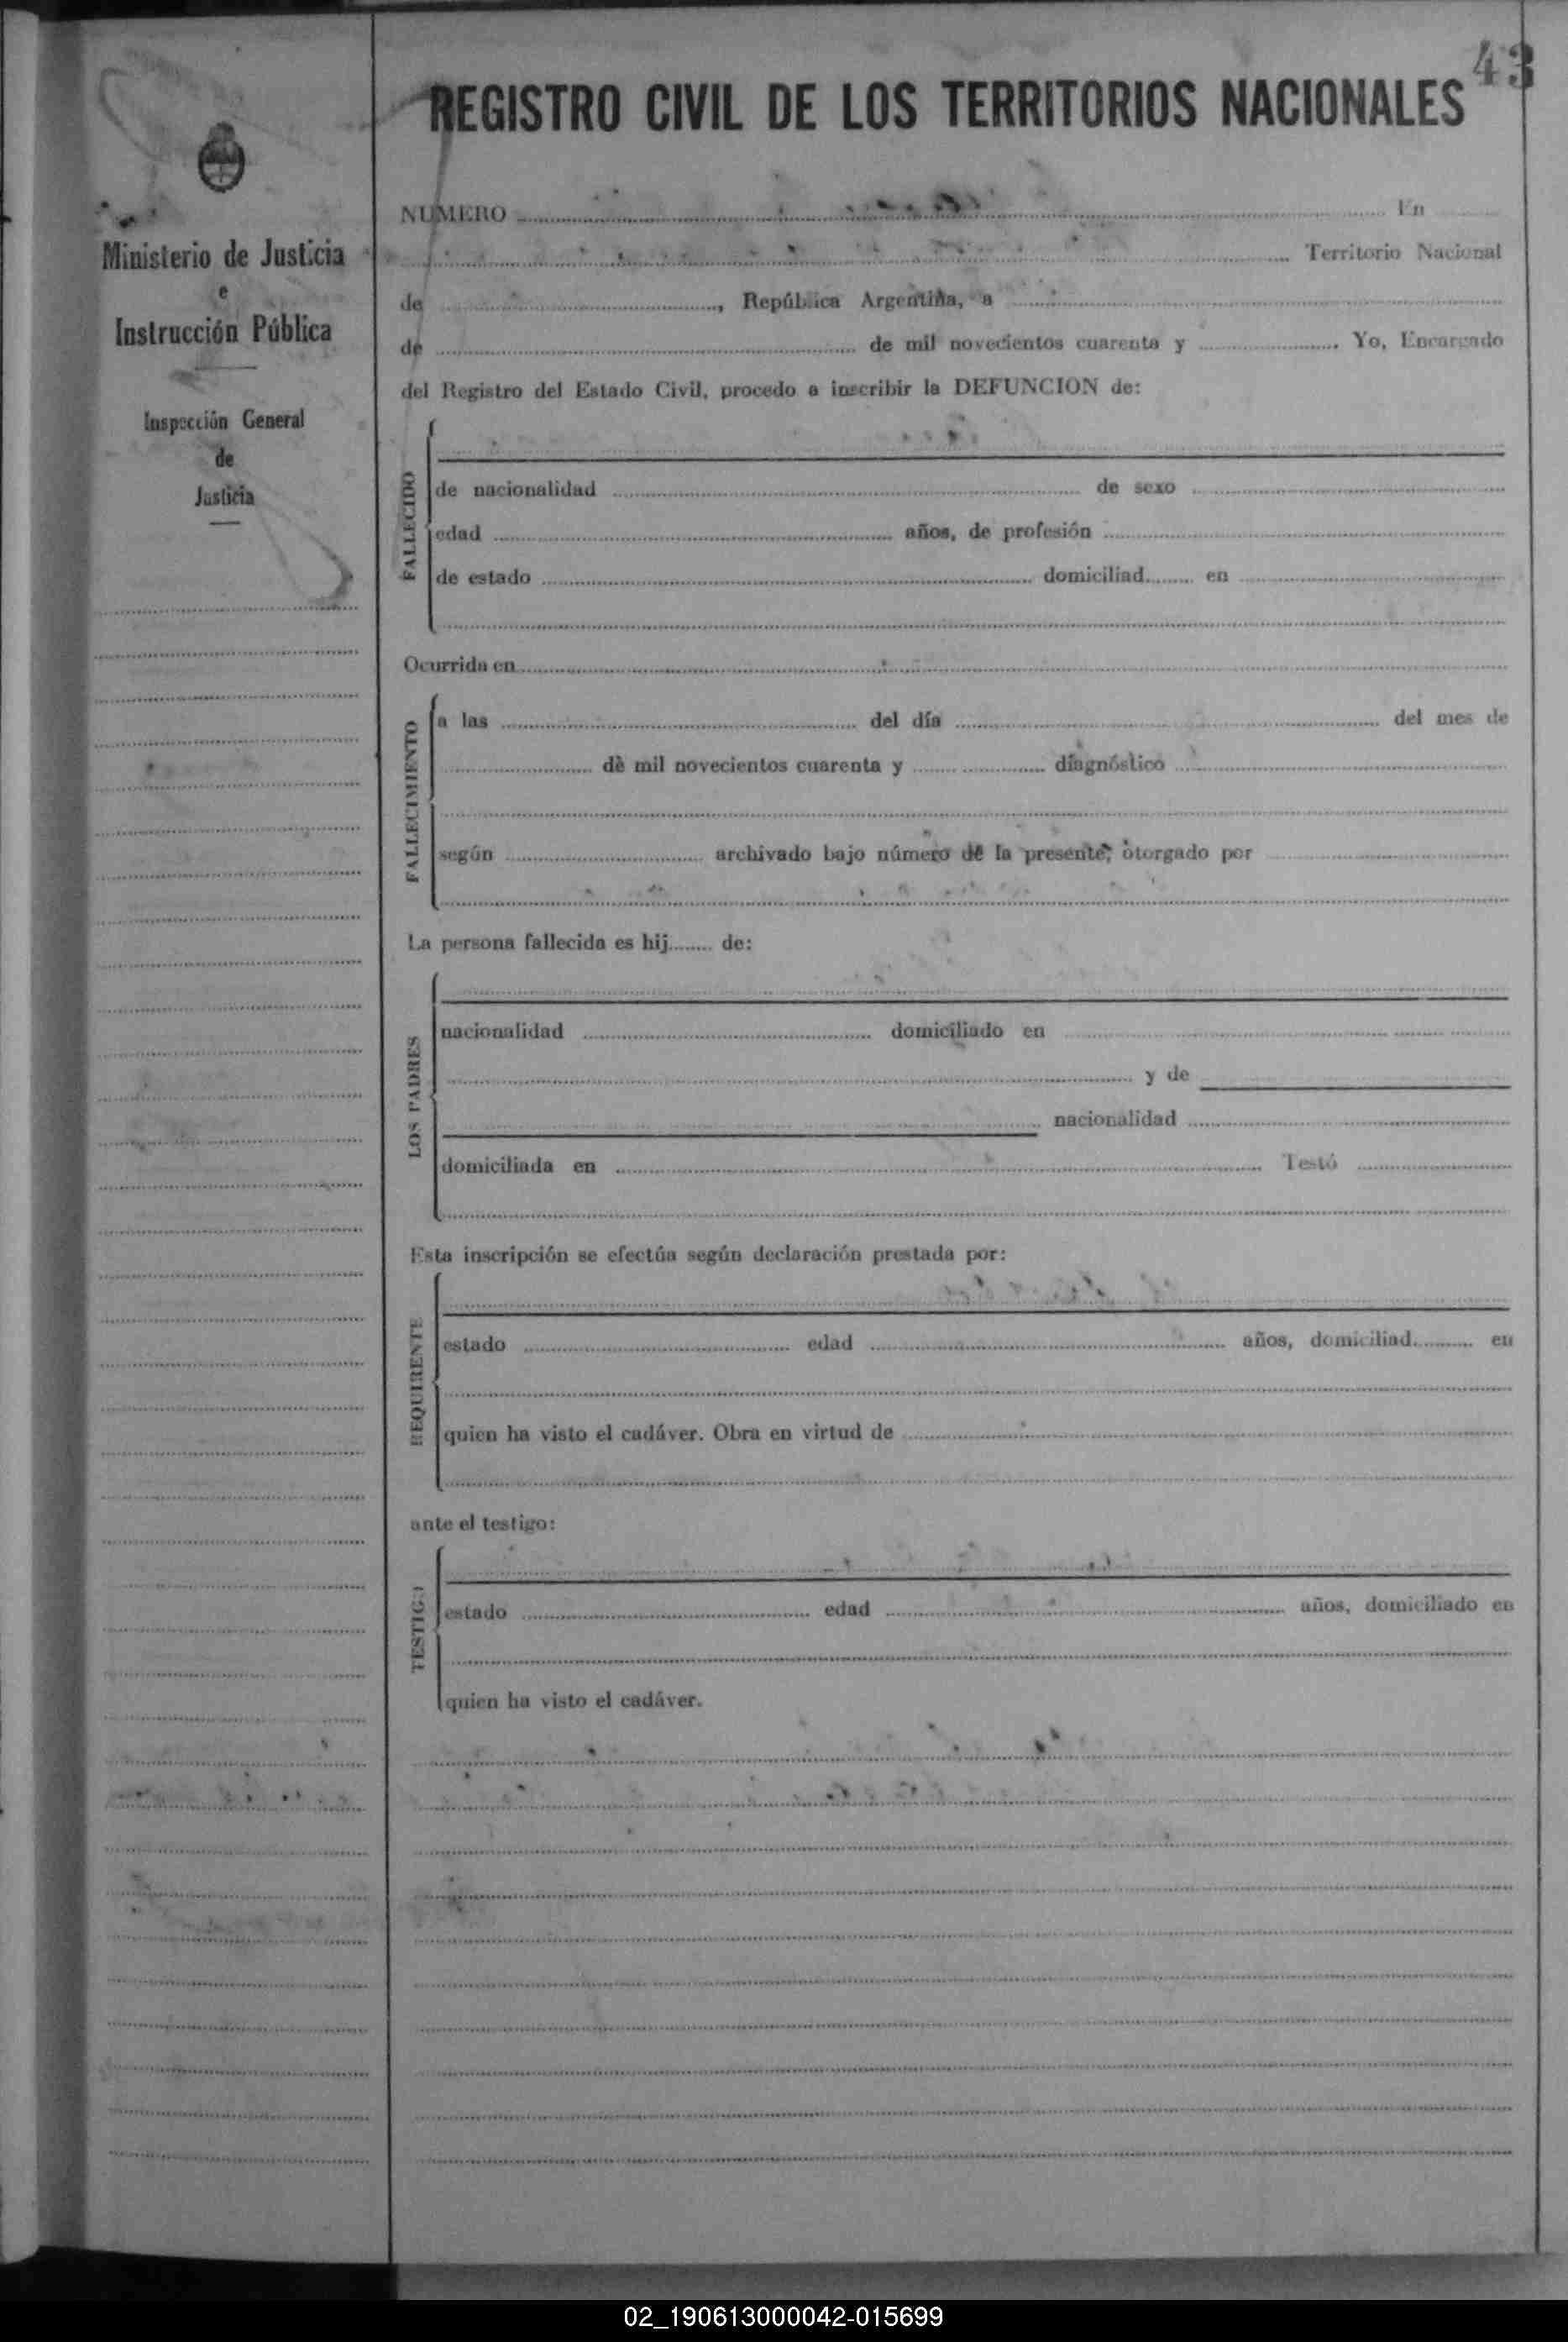 43
REGISTRO CIVIL DE LOS TERRITORIOS NACIONALES
Ministerio de Justicia
e
Instrucción Pública
Inspección General
de
Justicia
NUMERO ........ En ........
........ Territorio Nacional
de ........, República Argentina, a ........
de ........ de mil novecientos cuarenta y ......... Yo, Encargado
del Registro del Estado Civil, procedo a inscribir la DEFUNCION de:
FALLECIDO
de nacionalidad ........ de sexo ........
edad ........ años, de profesión ........
de estado ........ domiciliad........ en ........
Ocurrida en ........
FALLECIMIENTO
a las ........ del día ........ del mes de
........ de mil novecientos cuarenta y ........ diagnóstico ........
según ........ archivado bajo número de la presente, otorgado por ........
La persona fallecida es hij........ de:
LOS PADRES
nacionalidad ........ domiciliado en ........
........ y de
nacionalidad ........
domiciliada en ........ Testó ........
Esta inscripción se efectúa según declaración prestada por:
REQUIRENTE
estado ........ edad ........ años, domiciliad........ en
quien ha visto el cadáver. Obra en virtud de ........
ante el testigo:
TESTIGO
estado ........ edad ........ años, domiciliado en
quien ha visto el cadáver.
02_190613000042-015699